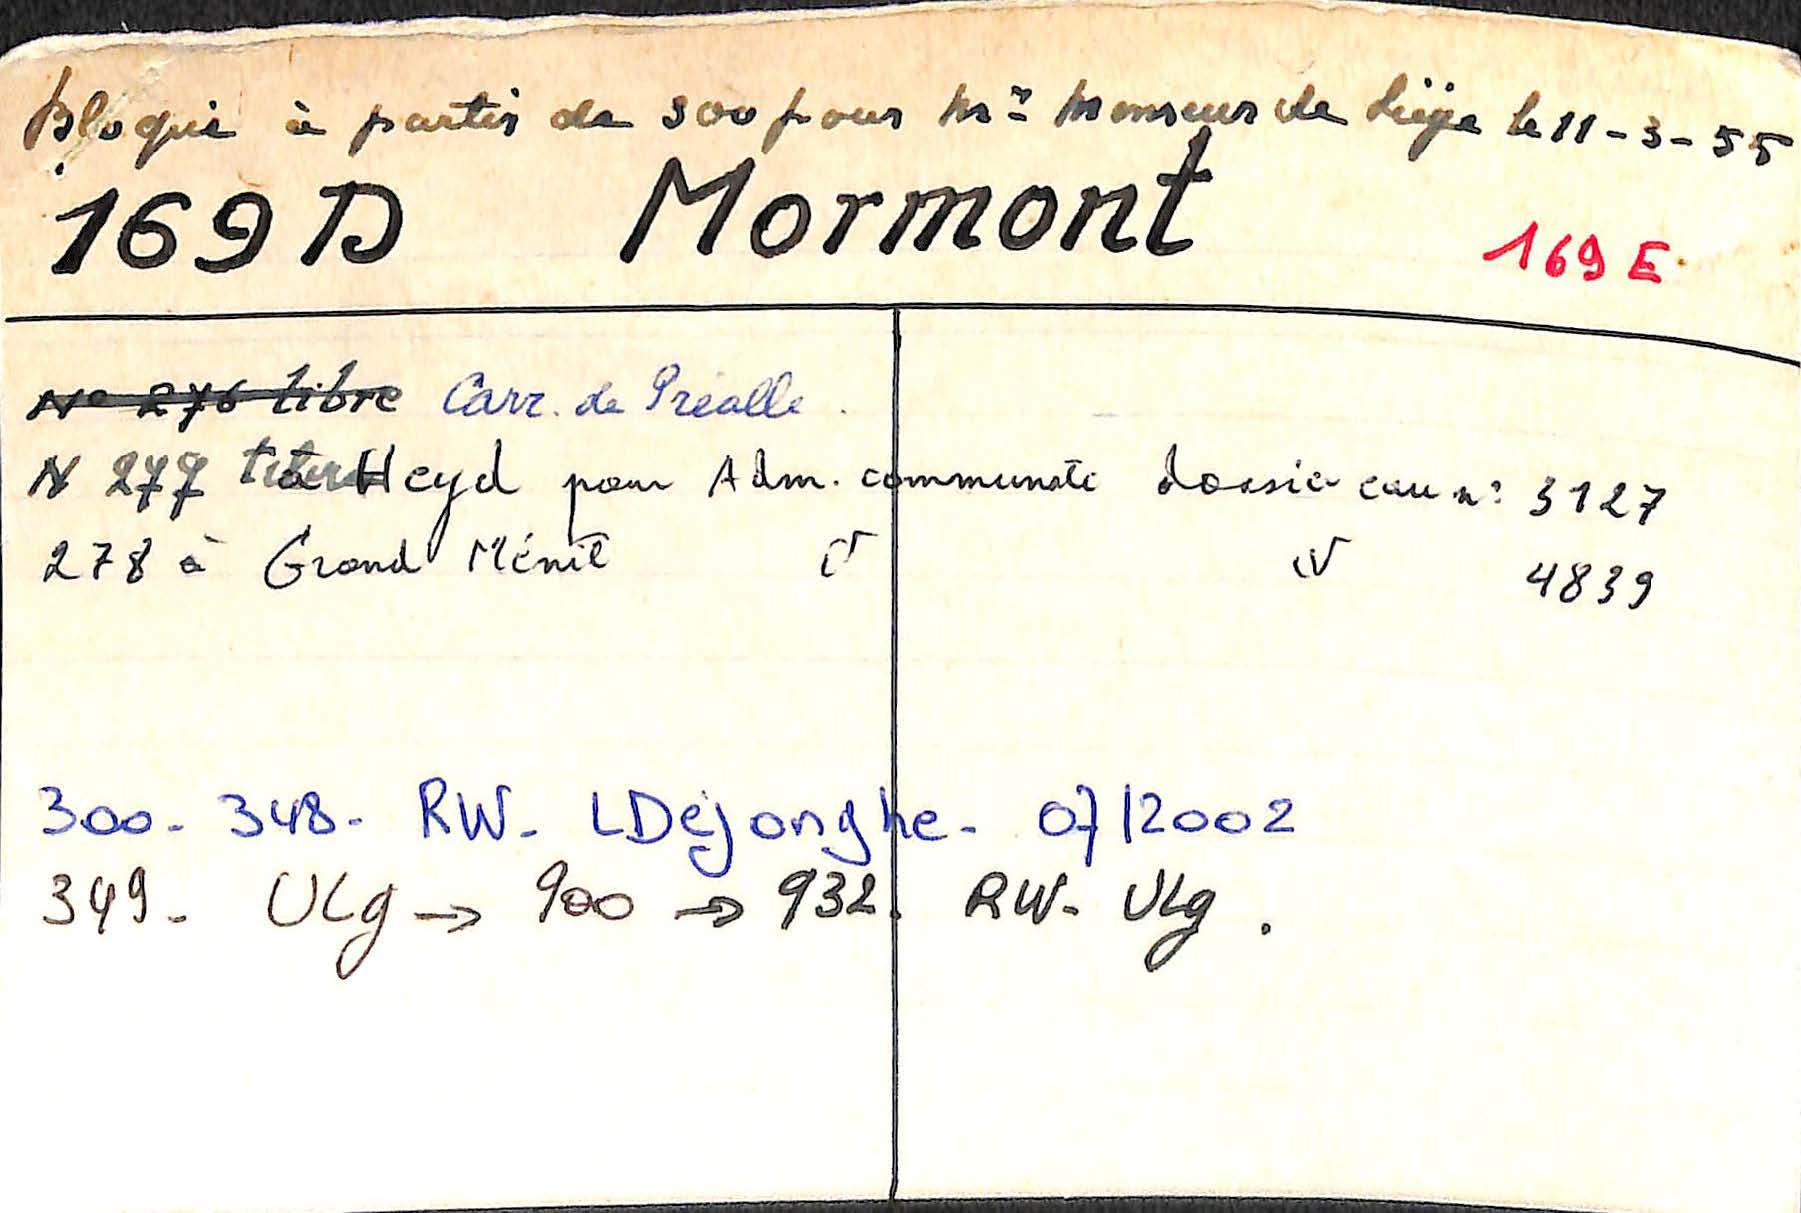 Bloqué à partir de 300 pour Mr Monseur de Liège le 11-3-55
169 D Mormont 169 E
N° 276 libre Carr. de Préalle.
N 277 à Heyd pour Adm. communale dossier eau n° 3127
278 à Grand Ménil id id 4839
300 - 348 - RW - L Dejonghe - 07/2002
349 - ULg → 900 → 932. RW - ULg.